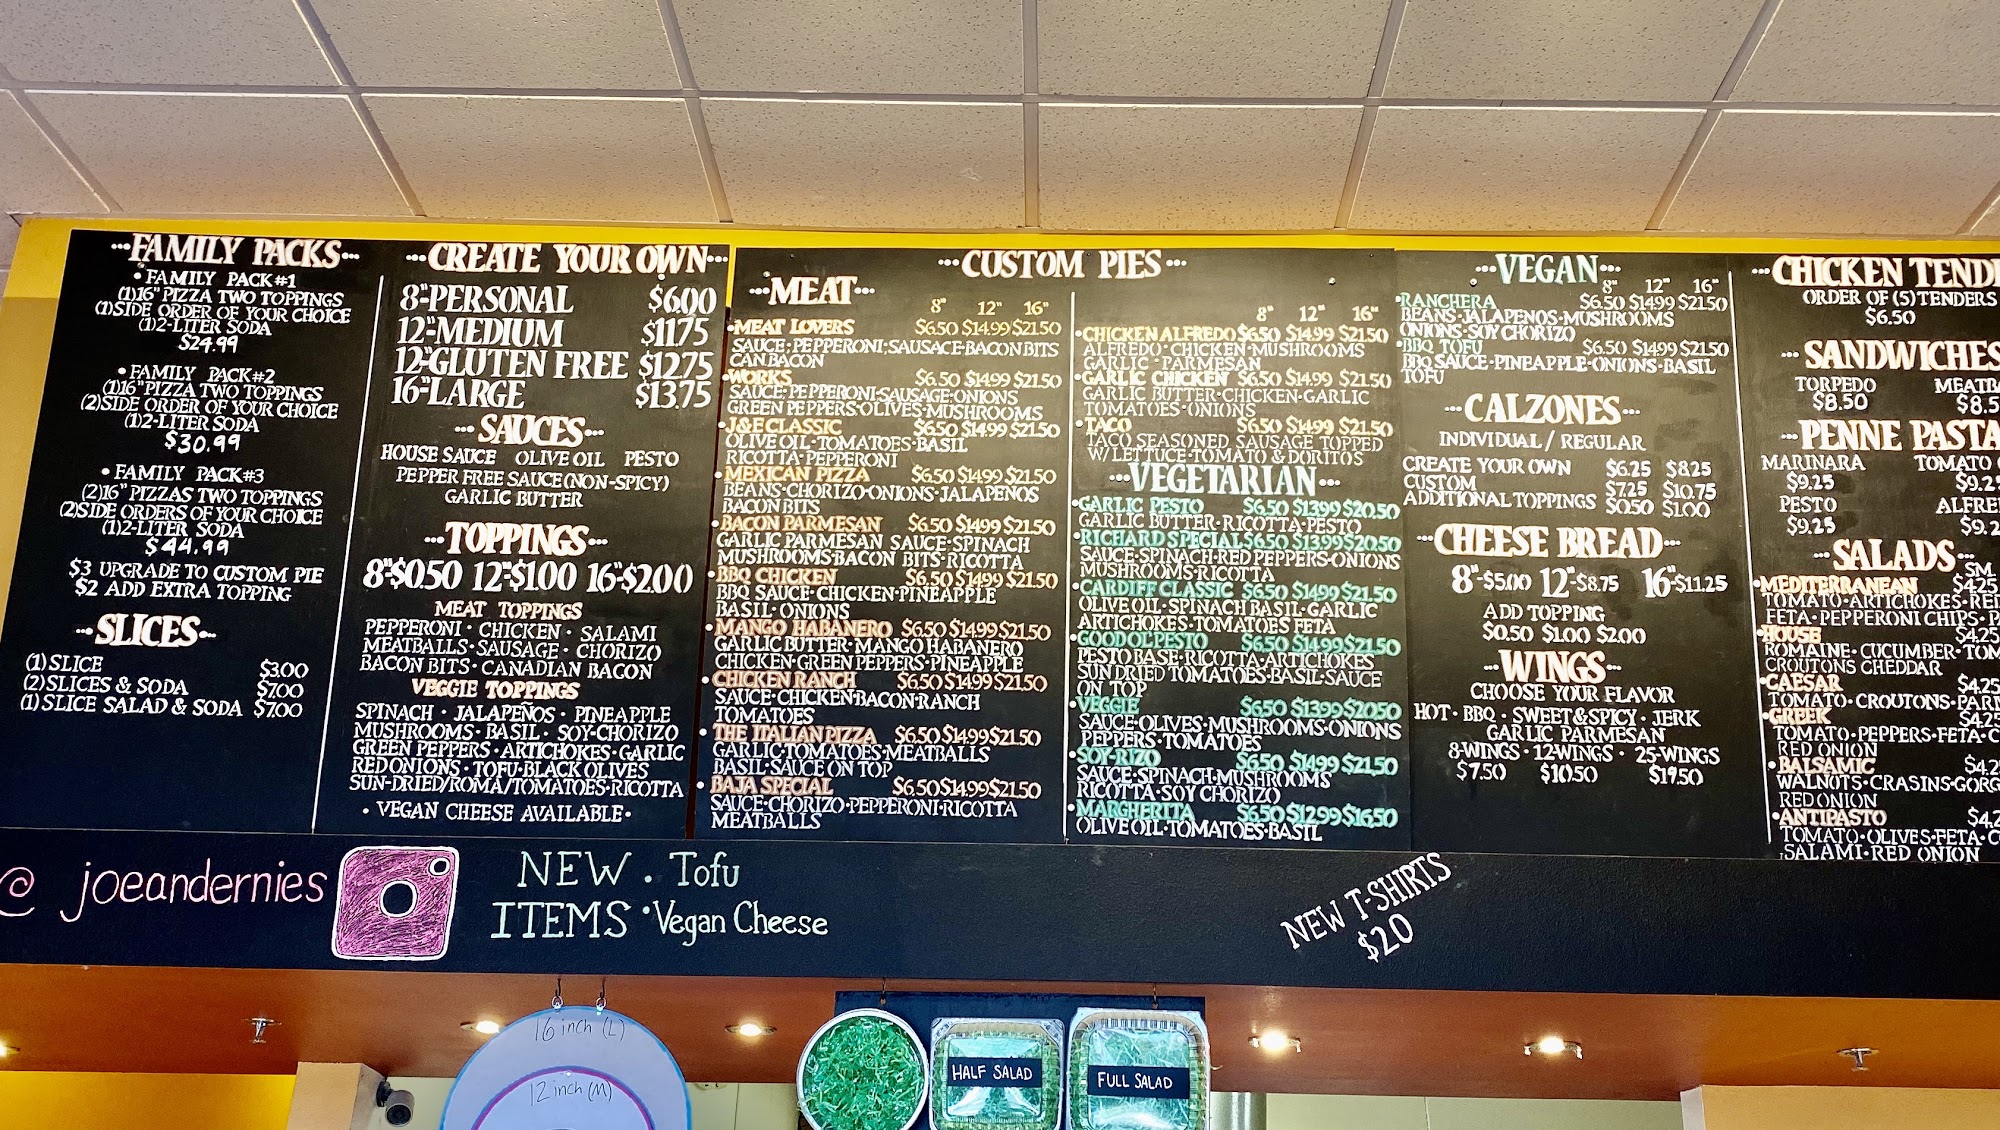 ···FAMILY PACKS···
• FAMILY PACK #1
(1)16" PIZZA TWO TOPPINGS
(1)SIDE ORDER OF YOUR CHOICE
(1)2-LITER SODA
$24.99
• FAMILY PACK #2
(1)16" PIZZA TWO TOPPINGS
(2)SIDE ORDER OF YOUR CHOICE
(1)2-LITER SODA
$30.99
• FAMILY PACK #3
(2)16" PIZZAS TWO TOPPINGS
(2)SIDE ORDERS OF YOUR CHOICE
(1)2-LITER SODA
$44.99
$3 UPGRADE TO CUSTOM PIE
$2 ADD EXTRA TOPPING
···SLICES···
(1) SLICE $3.00
(2) SLICES & SODA $7.00
(1) SLICE SALAD & SODA $7.00
···CREATE YOUR OWN···
8"-PERSONAL $6.00
12"-MEDIUM $11.75
12"-GLUTEN FREE $12.75
16"-LARGE $13.75
···SAUCES···
HOUSE SAUCE OLIVE OIL PESTO
PEPPER FREE SAUCE (NON-SPICY)
GARLIC BUTTER
···TOPPINGS···
8"-$0.50 12"-$1.00 16"-$2.00
MEAT TOPPINGS
PEPPERONI • CHICKEN • SALAMI
MEATBALLS • SAUSAGE • CHORIZO
BACON BITS • CANADIAN BACON
VEGGIE TOPPINGS
SPINACH • JALAPEÑOS • PINEAPPLE
MUSHROOMS • BASIL • SOY-CHORIZO
GREEN PEPPERS • ARTICHOKES • GARLIC
RED ONIONS • TOFU • BLACK OLIVES
SUN-DRIED/ROMA/TOMATOES • RICOTTA
• VEGAN CHEESE AVAILABLE •
···CUSTOM PIES···
···MEAT···
8" 12" 16"
•MEAT LOVERS $6.50 $14.99 $21.50
SAUCE•PEPPERONI•SAUSAGE•BACON BITS
CAN.BACON
•WORKS $6.50 $14.99 $21.50
SAUCE•PEPPERONI•SAUSAGE•ONIONS
GREEN PEPPERS•OLIVES•MUSHROOMS
•J&E CLASSIC $6.50 $14.99 $21.50
OLIVE OIL•TOMATOES•BASIL
RICOTTA•PEPPERONI
•MEXICAN PIZZA $6.50 $14.99 $21.50
BEANS•CHORIZO•ONIONS•JALAPENOS
BACON BITS
•BACON PARMESAN $6.50 $14.99 $21.50
GARLIC PARMESAN SAUCE•SPINACH
MUSHROOMS•BACON BITS•RICOTTA
•BBQ CHICKEN $6.50 $14.99 $21.50
BBQ SAUCE•CHICKEN•PINEAPPLE
BASIL•ONIONS
•MANGO HABANERO $6.50 $14.99 $21.50
GARLIC BUTTER•MANGO HABANERO
CHICKEN•GREEN PEPPERS•PINEAPPLE
•CHICKEN RANCH $6.50 $14.99 $21.50
SAUCE•CHICKEN•BACON•RANCH
TOMATOES
•THE ITALIAN PIZZA $6.50 $14.99 $21.50
GARLIC•TOMATOES•MEATBALLS
BASIL•SAUCE ON TOP
•BAJA SPECIAL $6.50 $14.99 $21.50
SAUCE•CHORIZO•PEPPERONI•RICOTTA
MEATBALLS
8" 12" 16"
•CHICKEN ALFREDO $6.50 $14.99 $21.50
ALFREDO•CHICKEN•MUSHROOMS
GARLIC•PARMESAN
•GARLIC CHICKEN $6.50 $14.99 $21.50
GARLIC BUTTER•CHICKEN•GARLIC
TOMATOES•ONIONS
•TACO $6.50 $14.99 $21.50
TACO SEASONED SAUSAGE TOPPED
W/LETTUCE•TOMATO & DORITOS
···VEGETARIAN···
•GARLIC PESTO $6.50 $13.99 $20.50
GARLIC BUTTER•RICOTTA•PESTO
•RICHARD SPECIAL $6.50 $13.99 $20.50
SAUCE•SPINACH•RED PEPPERS•ONIONS
MUSHROOMS•RICOTTA
•CARDIFF CLASSIC $6.50 $14.99 $21.50
OLIVE OIL•SPINACH BASIL•GARLIC
ARTICHOKES•TOMATOES FETA
•GOOD OL' PESTO $6.50 $14.99 $21.50
PESTO BASE•RICOTTA•ARTICHOKES
SUN DRIED TOMATOES•BASIL•SAUCE
ON TOP
•VEGGIE $6.50 $13.99 $20.50
SAUCE•OLIVES•MUSHROOMS•ONIONS
PEPPERS•TOMATOES
•SOY-RIZO $6.50 $14.99 $21.50
SAUCE•SPINACH•MUSHROOMS
RICOTTA•SOY CHORIZO
•MARGHERITA $6.50 $12.99 $16.50
OLIVE OIL•TOMATOES•BASIL
···VEGAN···
8" 12" 16"
•RANCHERA $6.50 $14.99 $21.50
BEANS•JALAPENOS•MUSHROOMS
ONIONS•SOY CHORIZO
•BBQ TOFU $6.50 $14.99 $21.50
BBQ SAUCE•PINEAPPLE•ONIONS•BASIL
TOFU
···CALZONES···
INDIVIDUAL / REGULAR
CREATE YOUR OWN $6.25 $8.25
CUSTOM $7.25 $10.75
ADDITIONAL TOPPINGS $0.50 $1.00
···CHEESE BREAD···
8"-$5.00 12"-$8.75 16"-$11.25
ADD TOPPING
$0.50 $1.00 $2.00
···WINGS···
CHOOSE YOUR FLAVOR
HOT • BBQ • SWEET&SPICY • JERK
GARLIC PARMESAN
8-WINGS • 12-WINGS • 25-WINGS
$7.50 $10.50 $19.50
···CHICKEN TENDE
ORDER OF (5) TENDERS
$6.50
···SANDWICHES
TORPEDO MEATBA
$8.50 $8.5
···PENNE PASTA
MARINARA TOMATO
$9.25 $9.2
PESTO ALFRE
$9.25 $9.2
···SALADS···
SM
•MEDITERRANEAN $4.25
TOMATO•ARTICHOKES•RED
FETA•PEPPERONI CHIPS•P
•HOUSE $4.25
ROMAINE•CUCUMBER•TOM
CROUTONS CHEDDAR
•CAESAR $4.25
TOMATO•CROUTONS•PARM
•GREEK $4.25
TOMATO•PEPPERS•FETA•C
RED ONION
•BALSAMIC $4.2
WALNUTS•CRASINS•GORG
RED ONION
•ANTIPASTO $4.2
TOMATO•OLIVES•FETA•C
SALAMI•RED ONION
@ joeandernies
NEW • Tofu
ITEMS • Vegan Cheese
NEW T-SHIRTS
$20
16 inch (L)
12 inch (M)
HALF SALAD
FULL SALAD